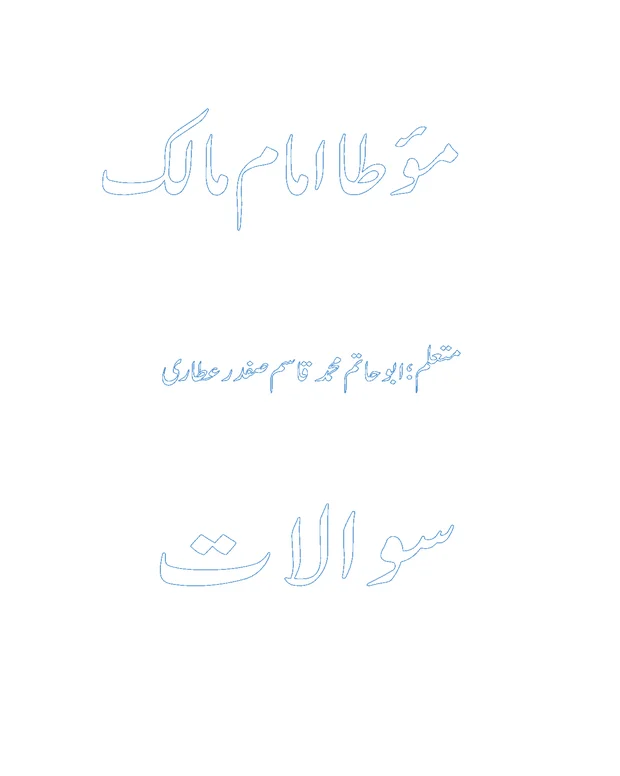 مؤطا امام مالک
متعلم؛ابو حاتم محمد قاسم صفدر عطاری
سوالات